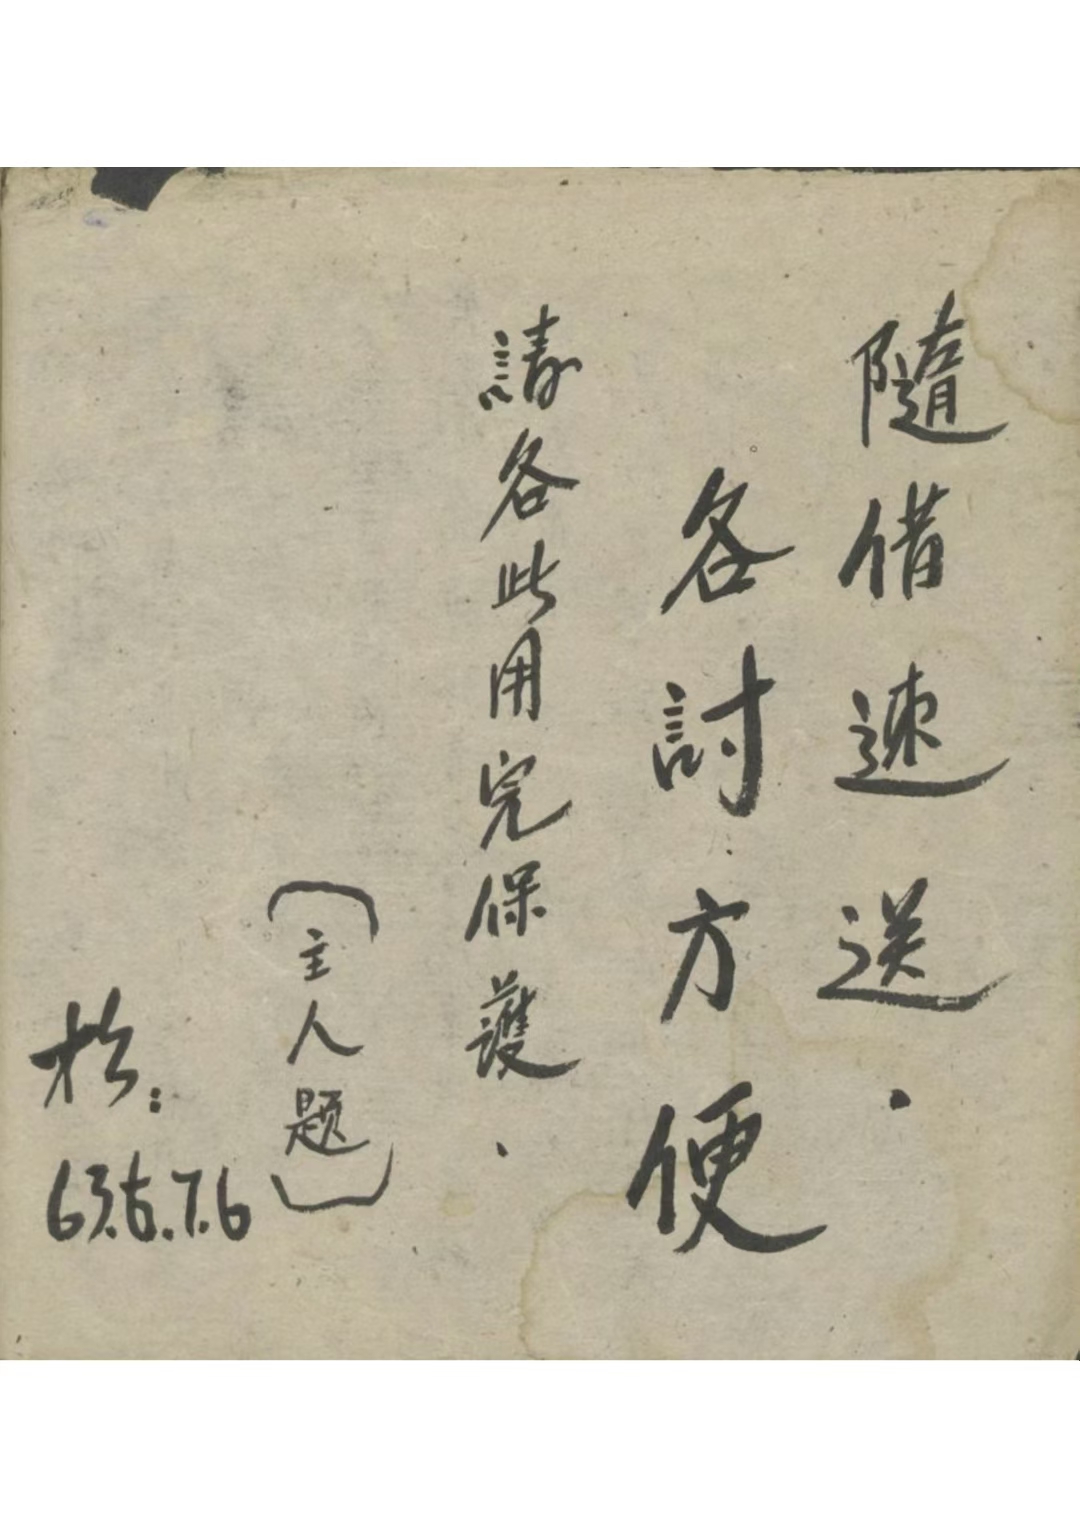 隨借速送．
各討方便
請各此用完保護．
（主人题）
松：
63.6.7.6